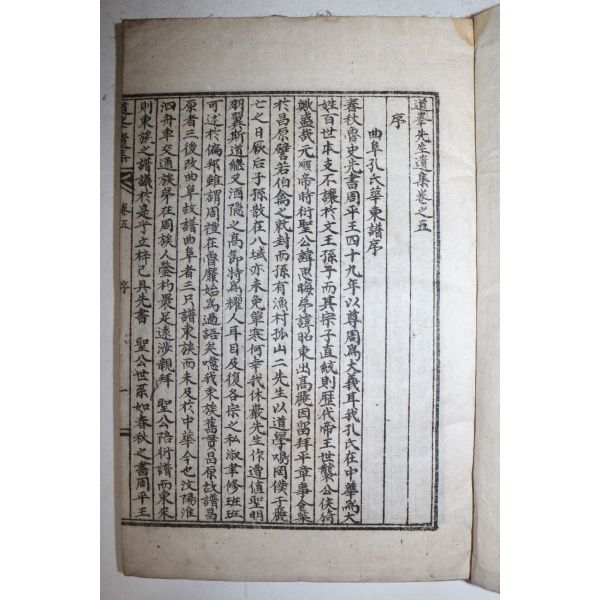 道峯先生遺集卷之五
序
曲阜孔氏華東譜序
春秋魯史先書周平王四十九年以尊周爲大義耳我孔氏在中華爲大
姓百世本支不讓於文王孫子而其宗子直統則歷代帝王世襲公侯猗
歟盛哉元順帝時衍聖公諱思晦弟諱昭東出高麗因留拜平章事食菜
於昌原譬若伯禽之就封而孫有漁村孤山二先生以道學鳴罔僕于麗
亡之日厥后子孫散在八域亦未免單寒何幸我休巖先生作遭值聖明
羽翼斯道繼又酒隱之高節特爲耀人耳目及復各宗之私淑聿修班班
可述於偏邦雖謂周禮在魯靡始爲過語矣噫我東族舊貫昌原故譜昌
原者三後改曲阜故譜曲阜者三只譜東族而未及於中華今也汶陽淮
泗舟車交通族
則東族之譜議於是乎立梓已具先書 聖公世系如春秋之書周平王
道峯遺集
卷五
序
一